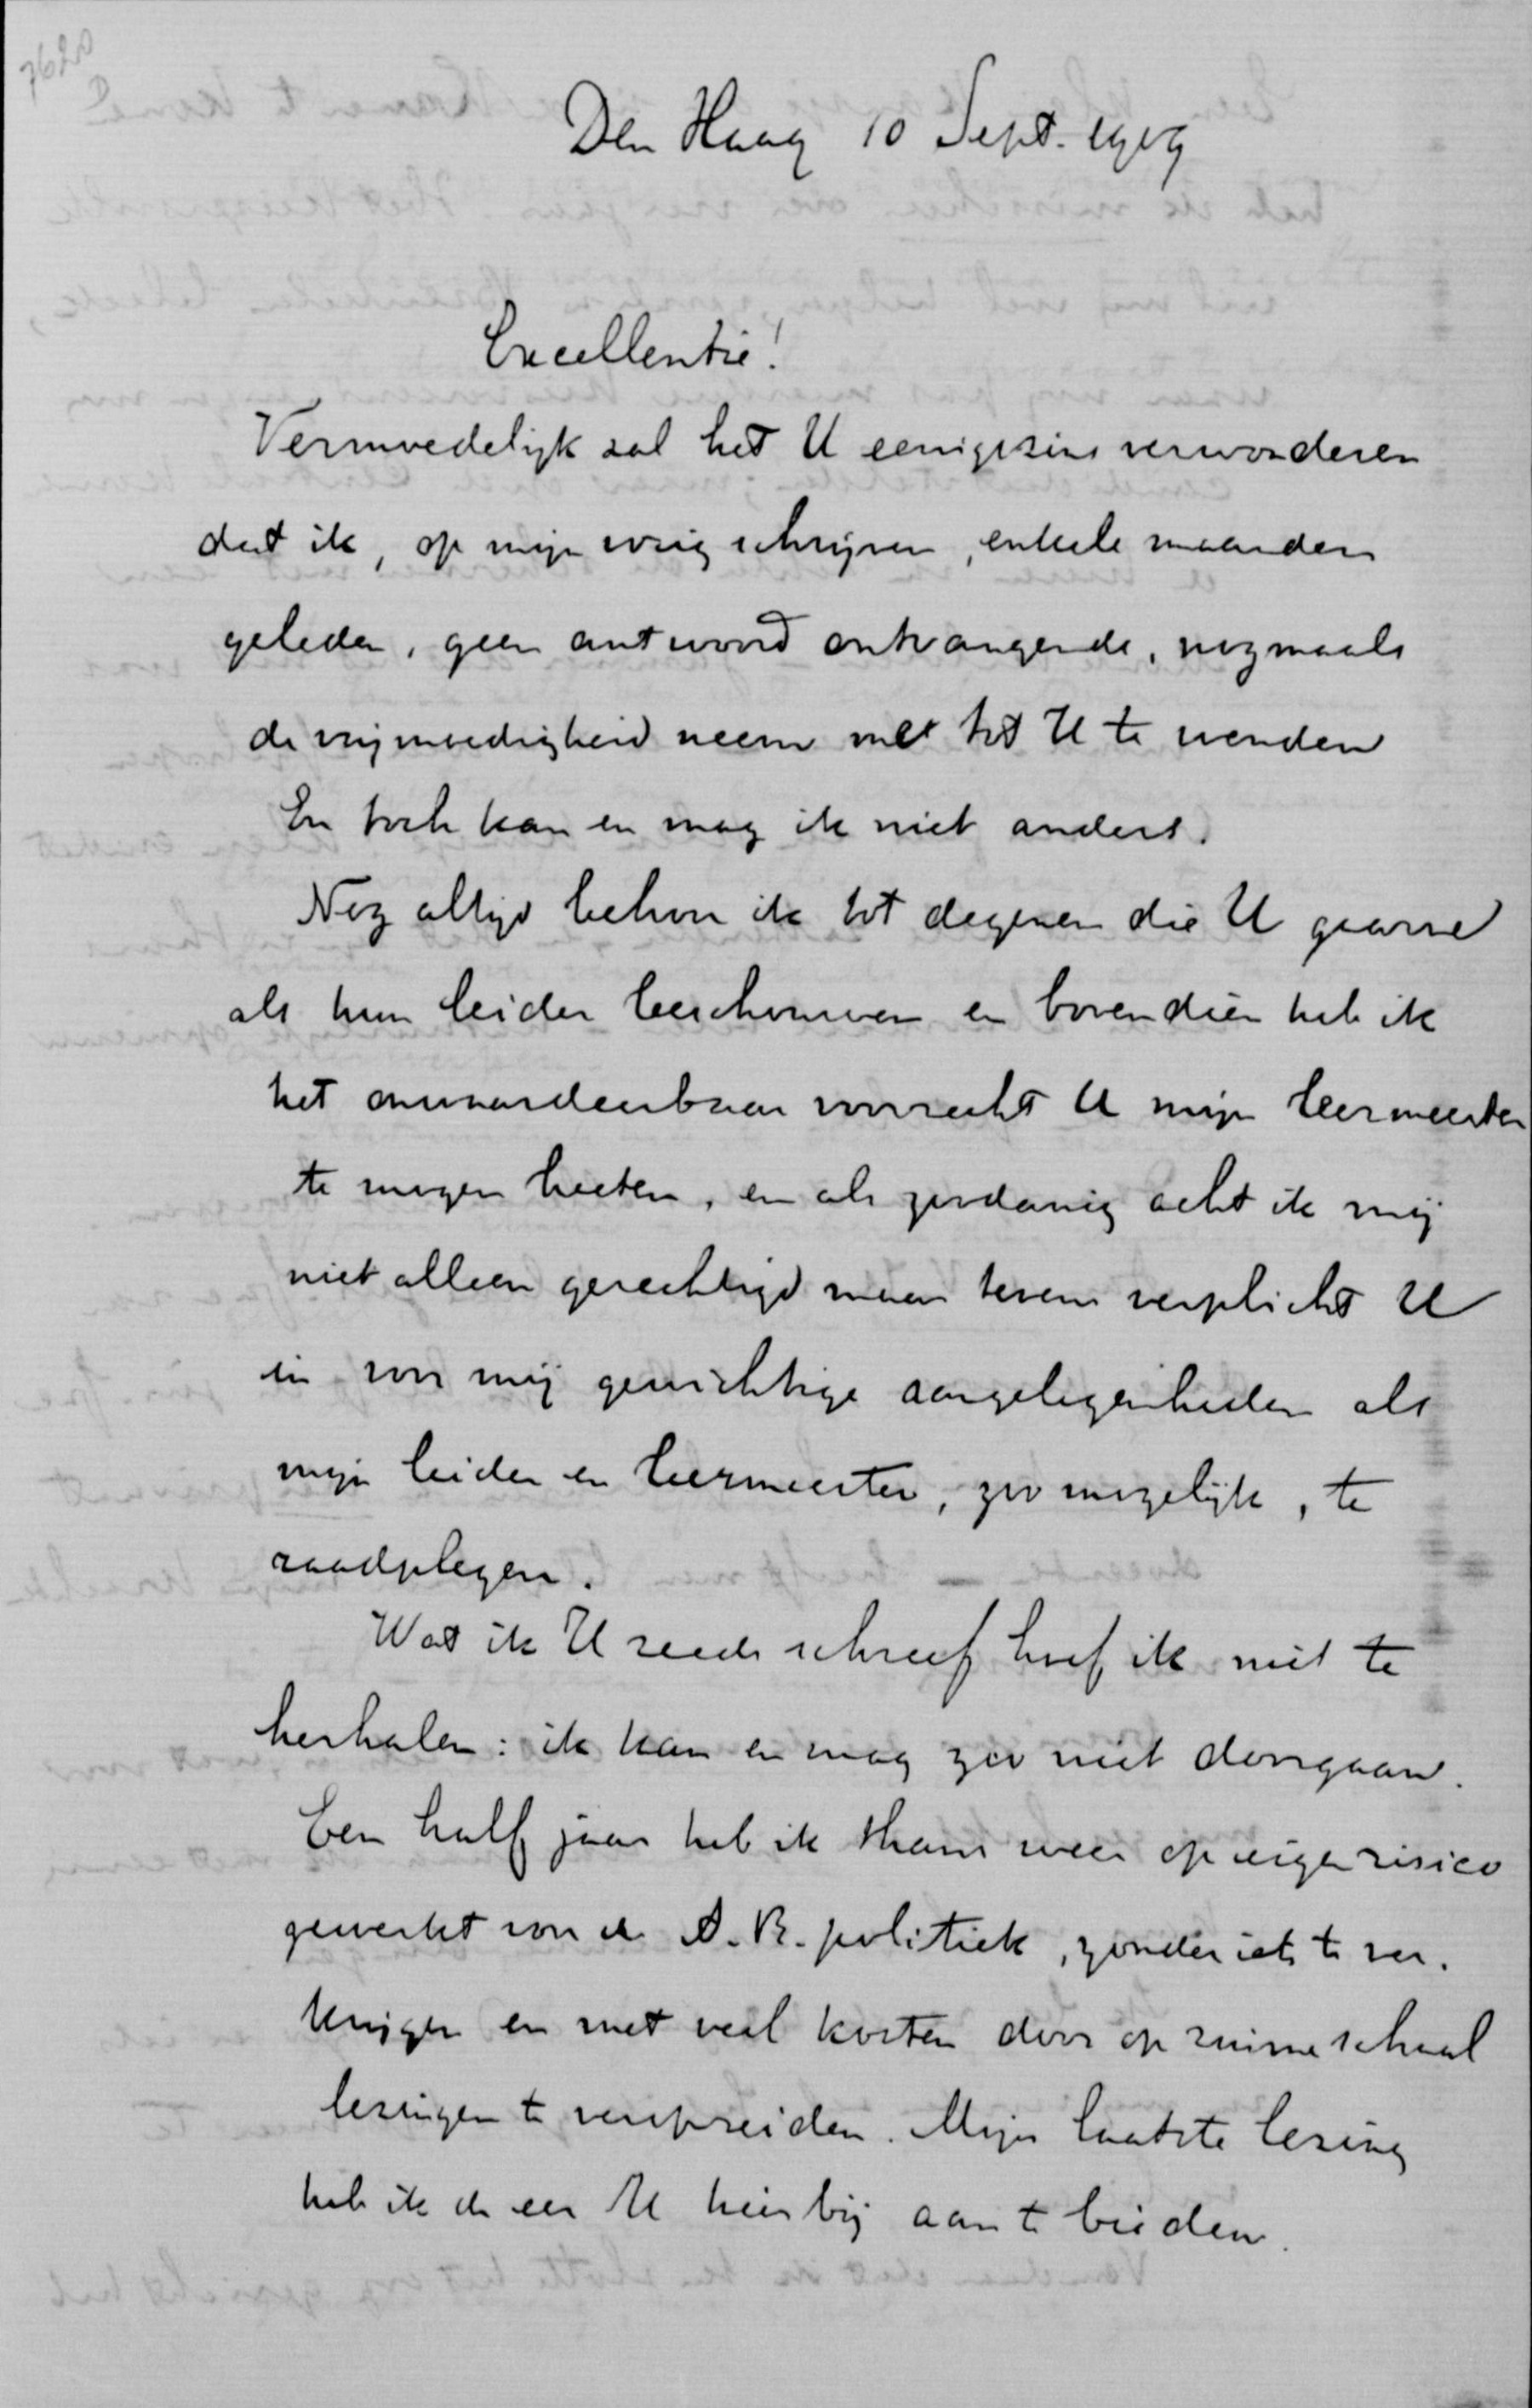 Den Haag 10 Sept. 1909
Excellentie!
Vermoedelijk zal het U eenigszins verwonderen
dat ik, op mijn vorig schrijven, enkele maanden
geleden, geen antwoord ontvangende, nogmaals
de vrijmoedigheid neem met tot U te wenden
En toch kan en mag ik niet anders.
Nog altijd behoor ik tot degenen die U gaarne
als hun leider beschouwen en bovendien heb ik
het onwaardeerbaar voorrecht U mijn leermeester
te mogen heeten, en als zoodanig acht ik mij
niet alleen gerechtigd maar tevens verplicht U
in voor mij gewichtige aangelegenheden als
mijn leider en leermeester, zoo mogelijk, te
raadplegen.
Wat ik U reeds schreef hoef ik niet te
herhalen: ik kan en mag zoo niet doorgaan.
Een half jaar heb ik thans weer op eigen risico
gewerkt voor de A.R. politiek, zonder iets te ver-
krijgen en met veel kosten door op ruime schaal
lezingen te verspreiden. Mijn laatste lezing
heb ik de eer U hierbij aan te bieden.